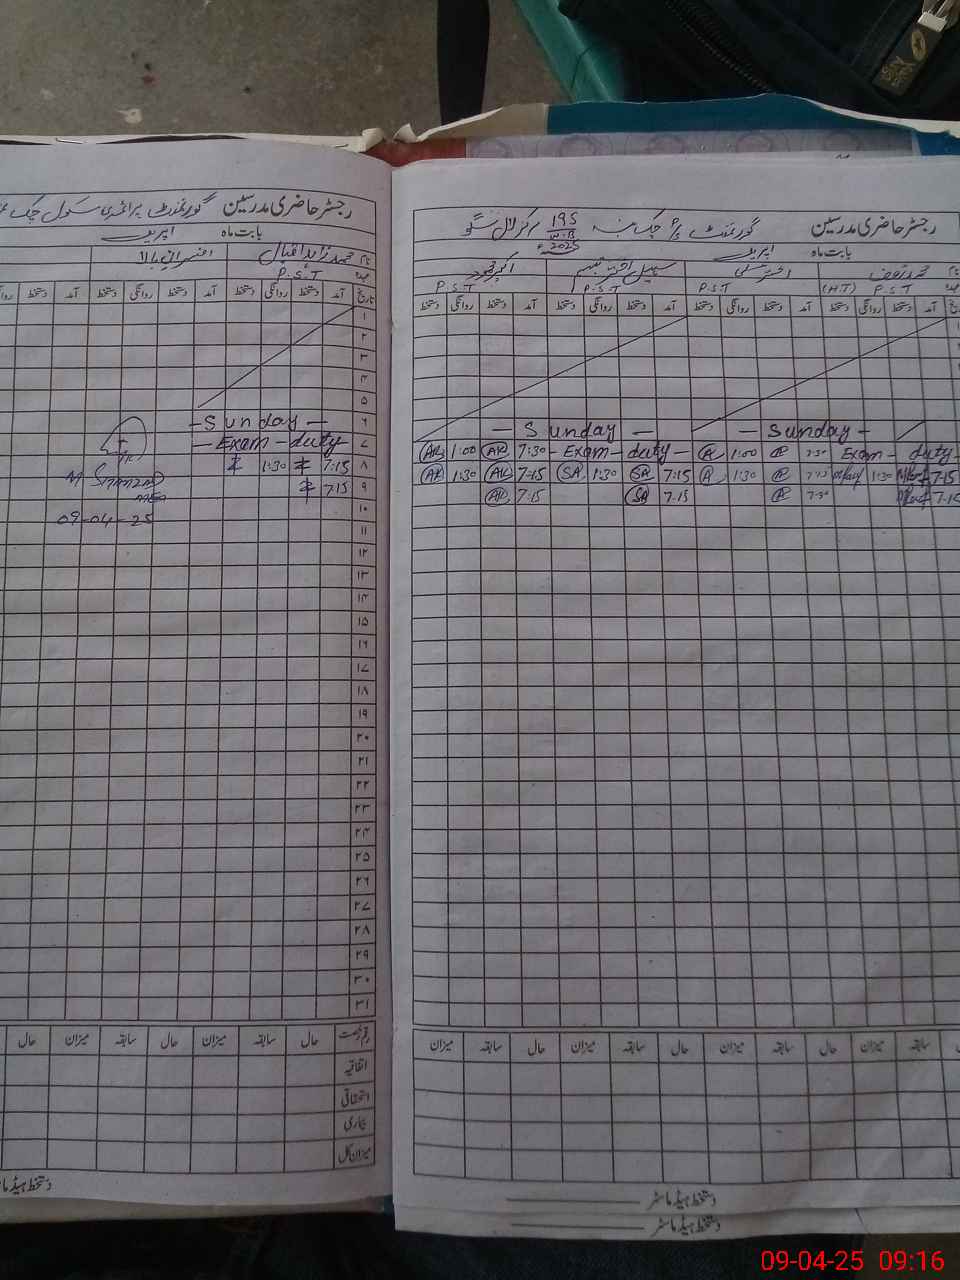 رجسٹر حاضری مدرسین گورنمنٹ پرائمری سکول چک
بابت ماہ اپریل
محمد زاہد اقبال
P.S.T
تاریخ آمد دستخط روانگی دستخط آمد دستخط روانگی دستخط آمد دستخط
۱
۲
۳
۴
۵
۶ - Sunday -
۷ - Exam - duty
۸ 7:15 1:30
۹ 7.15
۱۰
۱۱
۱۲
۱۳
۱۴
۱۵
۱۶
۱۷
۱۸
۱۹
۲۰
۲۱
۲۲
۲۳
۲۴
۲۵
۲۶
۲۷
۲۸
۲۹
۳۰
۳۱
09-04-25
رقم رخصت حال سابقہ میزان حال سابقہ میزان حال
اتفاقیہ
استحقاقی
بیماری
میزان کل
دستخط ہیڈ ماسٹر
رجسٹر حاضری مدرسین گورنمنٹ چک نمبر 195 W.B مرکز
بابت ماہ اپریل 2025
P.S.T (HT)
P.S.T
P.S.T
P.S.T
آمد دستخط روانگی دستخط آمد دستخط روانگی دستخط آمد دستخط روانگی دستخط آمد دستخط روانگی دستخط
- Sunday - - Sunday -
AK 1:00 AK 7:30 - Exam - duty - 1:00 7:30 Exam - duty
AK 1:30 AK 7:15 SA 1:30 SA 7:15 1:30 7:15 1:30 7:15
AK 7:15 SA 7.15 7:30 7:15
سابقہ حال میزان سابقہ حال میزان سابقہ حال میزان سابقہ میزان
دستخط ہیڈ ماسٹر
دستخط ہیڈ ماسٹر
09-04-25 09:16